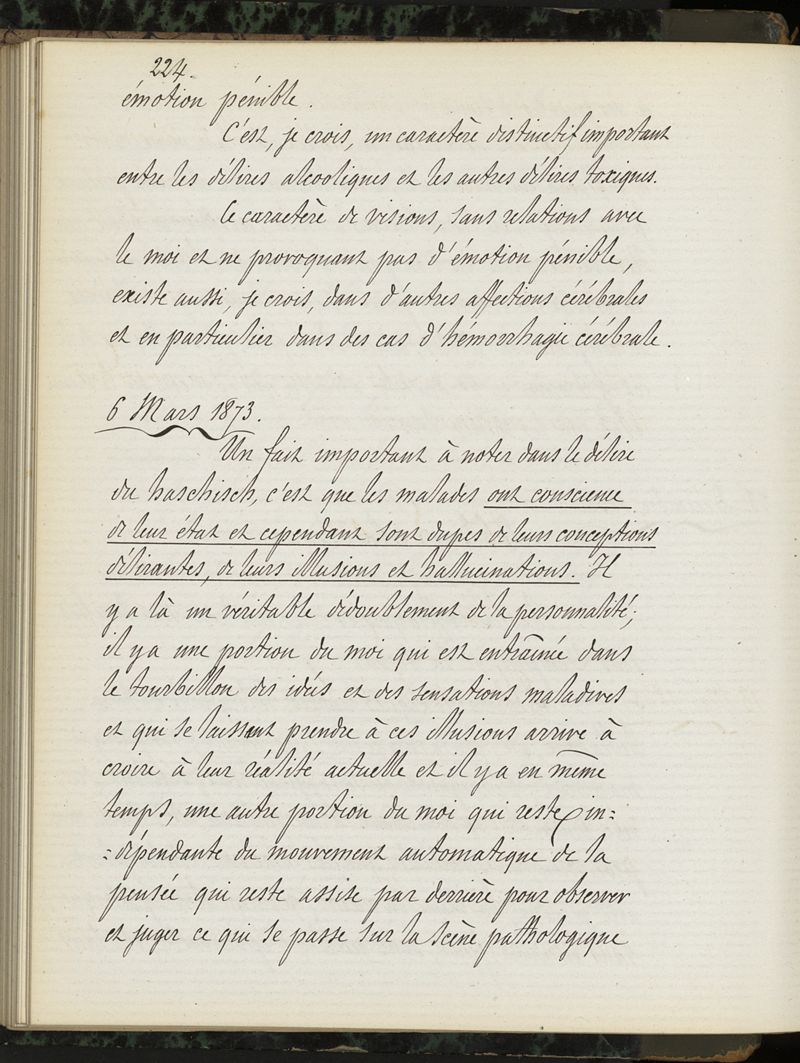 224.
émotion pénible.
C'est, je crois, un caractère distinctif important
entre les délires alcooliques et les autres délires toxiques.
Ce caractère de visions, sans relations avec
le moi et ne provoquant pas d'émotion pénible,
existe aussi, je crois, dans d'autres affections cérébrales
et en particulier dans des cas d'hémorrhagie cérébrale.
6 Mars 1873.
Un fait important à noter dans le délire
du haschisch, c'est que les malades ont conscience
de leur état et cependant sont dupes de leurs conceptions
délirantes, de leurs illusions et hallucinations. Il
y a là un véritable dédoublement de la personnalité;
il y a une portion du moi qui est entraînée dans
le tourbillon des idées et des sensations maladives
et qui se laissant prendre à ces illusions arrive à
croire à leur réalité actuelle et il y a en même
temps, une autre portion du moi qui reste in=
=dépendante du mouvement automatique de la
pensée qui reste assise par derrière pour observer
et juger ce qui se passe sur la scène pathologique